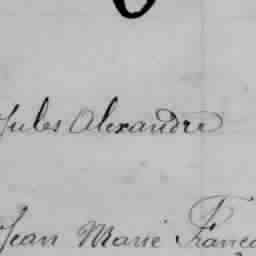 Jules Alexandre
Jean Marie